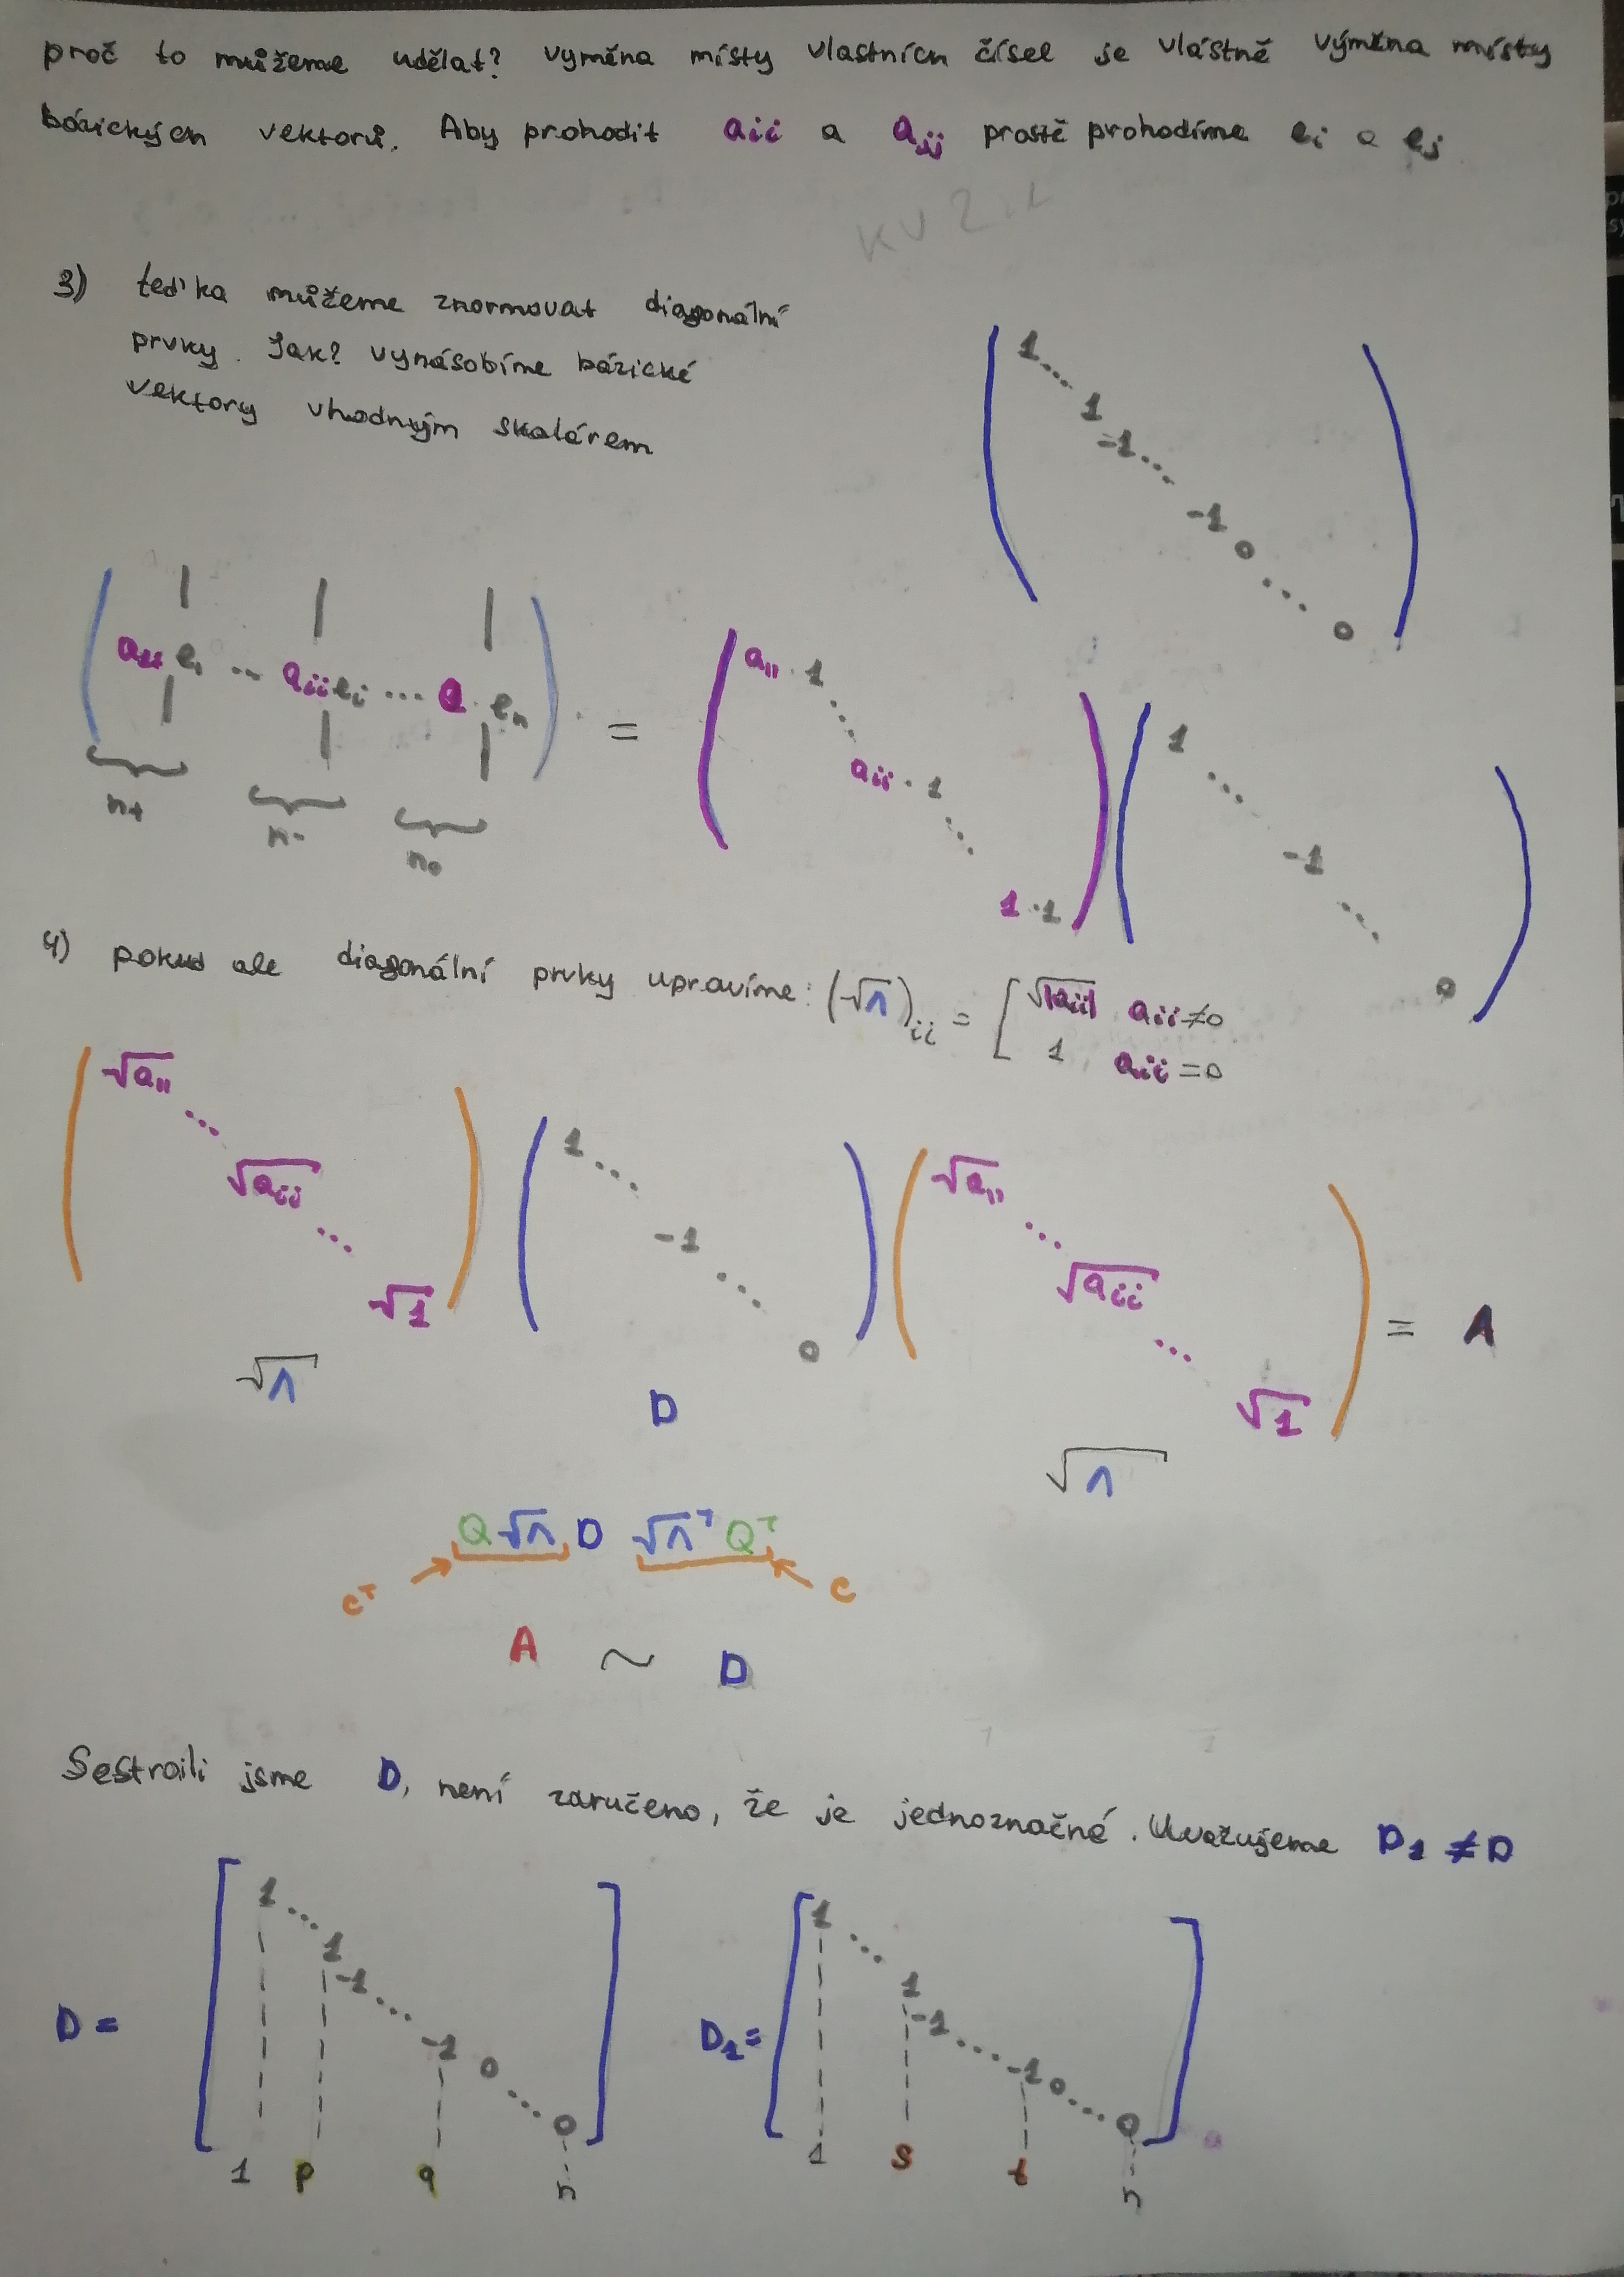 proč to můžeme udělat? vyměna místy vlastních čísel je vlástně výměna místy
bázických vektorů. Aby prohodit aii a ajj prostě prohodíme ei a ej
3) teďka můžeme znormovat diagonální
prvky. Jak? vynásobíme bázické
vektory vhodným skalárem
1 ... 1 -1 ... -1 0 ... 0
( a11 e1 ... aii ei ... a en ) = ( a11 · 1 ... aii · 1 ... 1 · 1 ) ( 1 ... -1 ... 0 )
n+ n- n0
4) pokud ale diagonální prvky upravíme: (√Λ)ii = [ √|aii| aii ≠ 0
1 aii = 0
( √a11 ... √aii ... √1 ) ( 1 ... -1 ... 0 ) ( √a11 ... √aii ... √1 ) = A
√Λ D √Λ
Q √Λ D √Λ^T Q^T
C^T C
A ~ D
Sestroili jsme D, není zaručeno, že je jednoznačné. Uvažujeme D1 ≠ D
D = [ 1 ... 1 -1 ... -1 0 ... 0 ] D1 = [ 1 ... 1 -1 ... -1 0 ... 0 ]
1 p q n 1 s t n